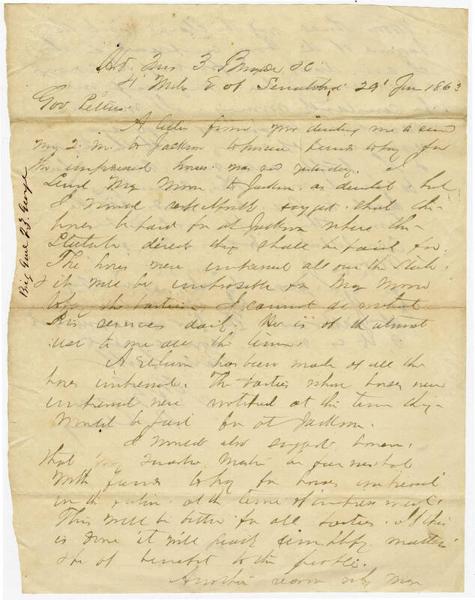 Hd Qrs 3 Brigde
4 Miles E of Senatobia 29' Jun 1863
Gov Pettus
A letter from you directing me to send
my Q. M. to Jackson to receive funds to pay for
the impressed horses was recd yesterday. I
send Maj Moon to Jackson as directed but
I would respectfully suggest that the
horses be paid for at Jackson where the
Statute directs they shall be paid for.
The horses were impressed all over the State
& it will be impossible for Maj Moon
to pay the parties. I cannot do without
his services daily. He is of the utmost
use to me all the time.
A return has been made of all the
horses impressed. The parties whose horses were
impressed were notified at the time they
would be paid for at Jackson.
I would also suggest
that Quarter Master be furnished
with funds to pay for horses impressed
in the future at the time of impressment.
This will be better for all parties. If this
is done it will much simplify matters
& be of benefit to the people.
Another reason why Maj
Brig Genl J Z George